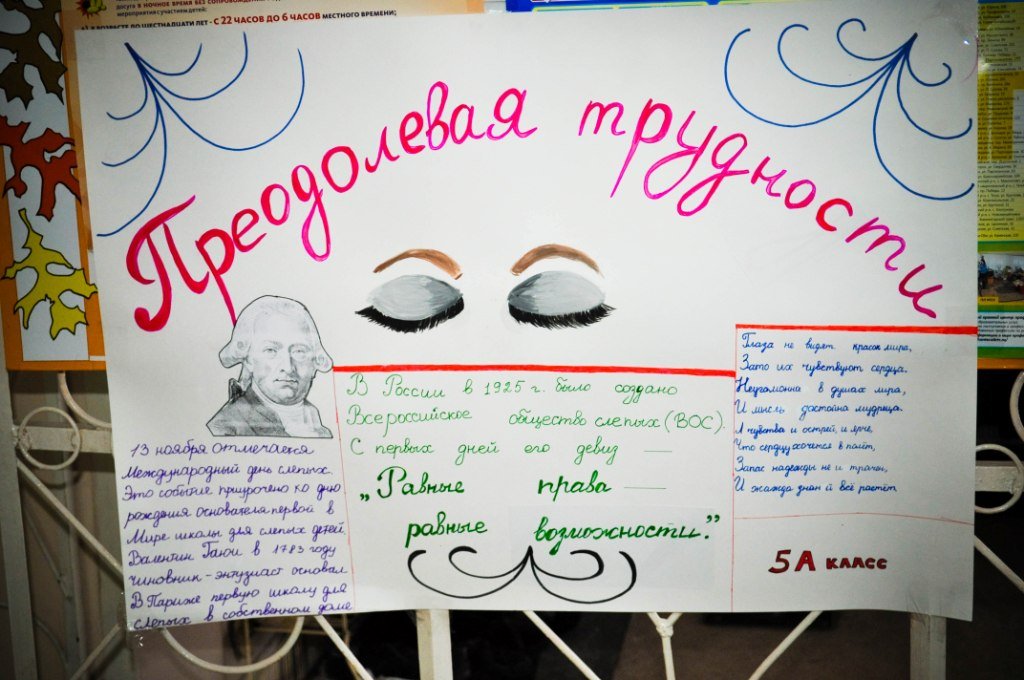 досуга в НОЧНОЕ ВРЕМЯ БЕЗ
мероприятия с участием детей:
С 22 ЧАСОВ ДО 6 ЧАСОВ МЕСТНОГО ВРЕМЕНИ;
Преодолевая трудности
13 ноября отмечается
Международный день слепых.
Это событие приурочено ко дню
рождения основателя первой в
Мире школы для слепых детей.
Валентин Гаюи в 1783 году
чиновник - энтузиаст основал
В Париже первую школу для
слепых в собственном доме
В России в 1925 г. было создано
Всероссийское общество слепых (ВОС).
С первых дней его девиз —
„Равные права —
равные возможности."
Глаза не видят красок мира,
Зато их чувствуют сердца.
Неугомонна в душах лира,
И мысль достойна мудреца.
А чувства и острей, и ярче,
Что сердцу хочется в полёт,
Запас надежды не и трачен,
И жажда знаний всё растёт
5А класс